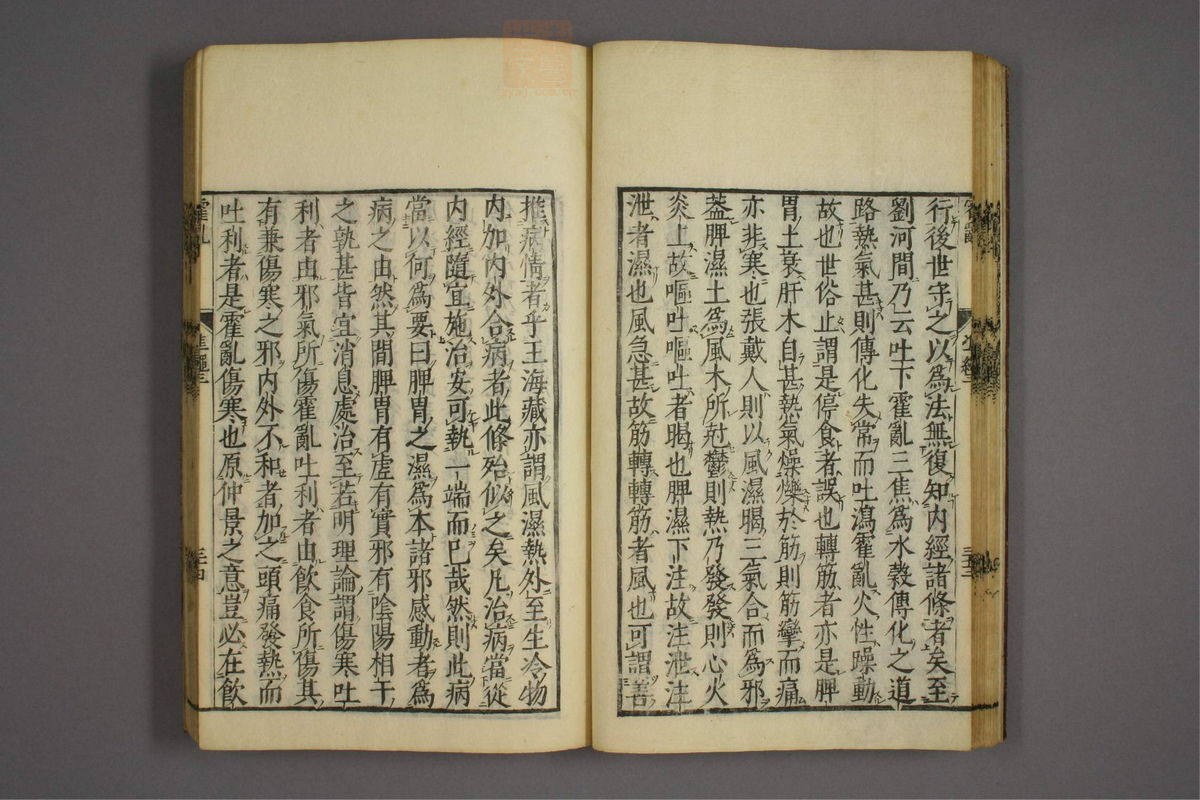 行後世守之以爲法無復知内經諸條者矣至
劉河間乃云吐下霍亂三焦爲水穀傳化之道
路熱氣甚則傳化失常而吐瀉霍亂火性躁動
故也世俗止謂是停食者誤也轉筋者亦是脾
胃土衰肝木自甚熱氣燥爍於筋則筋攣而痛
亦非寒也張戴人則以風濕暍三氣合而爲邪
葢脾濕土爲風木所尅鬱則熱乃發發則心火
炎上故嘔吐嘔吐者暍也脾濕下注故注泄注
泄者濕也風急甚故筋轉轉筋者風也可謂善
推病情者乎王海藏亦謂風濕熱外至生冷物
内加内外合病者此條殆似之矣凡治病當從
内經隨宜施治安可執一端而已哉然則此病
當以何爲要曰脾胃之濕爲本諸邪感動者爲
病之由然其間脾胃有虚有實邪有陰陽相干
之孰甚皆宜消息處治至若明理論謂傷寒吐
利者由邪氣所傷霍亂吐利者由飲食所傷其
有兼傷寒之邪内外不和者加之頭痛發熱而
吐利者是霍亂傷寒也原仲景之意豈必在飲
霍乱
三十四